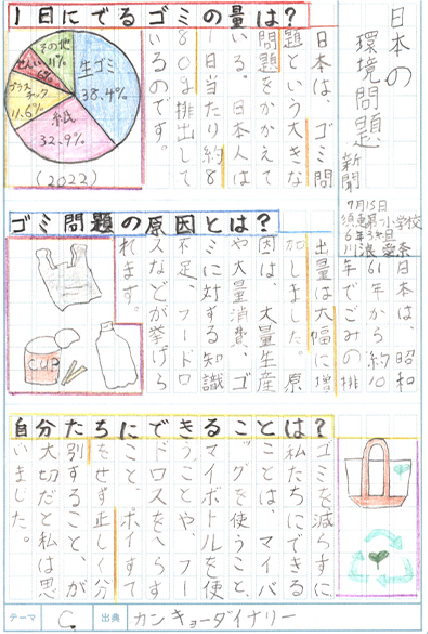 日本の
環境問題
新聞
7月15日
小学校
6年3組
1日にでるゴミの量は?
日本は、ゴミ問
題という大きな
問題をかかえて
いる。日本人は
日当たり約8
80g排出して
いるのです。
生ゴミ
38.4%
紙
32.9%
プラスチック
11.6%
せんい
6%
その他
11%
(2022)
ゴミ問題の原因とは?
日本は、昭和
61年から約10
年でごみの排
出量は大幅に増
加しました。原
因は、大量生産
や大量消費、ゴ
ミに対する知識
不足、フードロ
スなどが挙げら
れます。
CUP
自分たちにできることは?
ゴミを減らすに
私たちにできる
ことは、マイバ
ッグを使うこと、
マイボトルを使
うことや、フー
ドロスをへらす
こと、ポイすて
をせず正しく分
別すること、が
大切だと私は思
いました。
テーマ C. 出典 カンキョーダイナリー